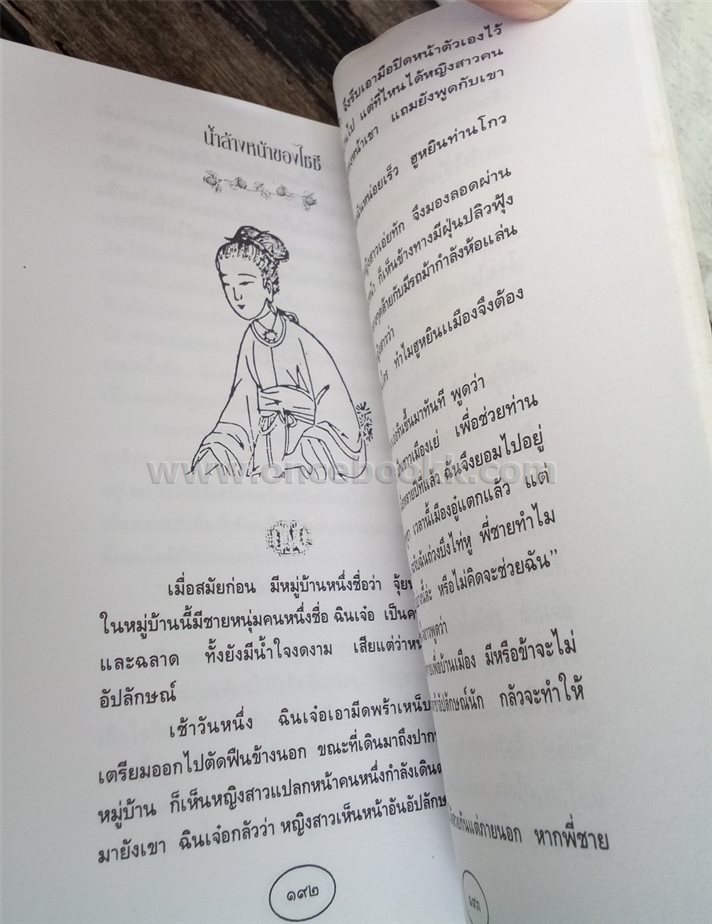 น้ำล้างหน้าของไซซี
เมื่อสมัยก่อน มีหมู่บ้านหนึ่งชื่อว่า
ในหมู่บ้านนี้มีชายหนุ่มคนหนึ่งชื่อ ฉินเจ๋อ เป็น
และฉลาด ทั้งยังมีน้ำใจงดงาม เสียแต่ว่า
อัปลักษณ์
เช้าวันหนึ่ง ฉินเจ๋อเอามีดพร้าเหน็บ
เตรียมออกไปตัดฟืนข้างนอก ขณะที่เดินมาถึง
หมู่บ้าน ก็เห็นหญิงสาวแปลกหน้าคนหนึ่งกำลังเดิน
มายังเขา ฉินเจ๋อกลัวว่า หญิงสาวเห็นหน้าอัน
๑๙๒
จึงรีบเอามือปิดหน้าตัวเองไว้
แต่ที่ไหนได้หญิงสาวคน
แถมยังพูดกับเขา
หน่อยเร็ว ฮูหยินท่านโกว
จึงมองลอดผ่าน
ก็เห็นข้างทางมีฝุ่นปลิวฟุ้ง
คล้ายกับมีรถม้ากำลังห้อแล่น
ทำไมฮูหยินเมืองจึงต้อง
ขึ้นมาทันที พูดว่า
เพื่อช่วยท่าน
ฉันจึงยอมไปอยู่
เวลานี้เมืองอู๋แตกแล้ว แต่
พี่ชายทำไม
หรือไม่คิดจะช่วยฉัน"
เพื่อบ้านเมือง มีหรือข้าจะไม่
กลัวจะทำให้
แต่ภายนอก หากพี่ชาย
๑๙๓
www.oncebookk.com